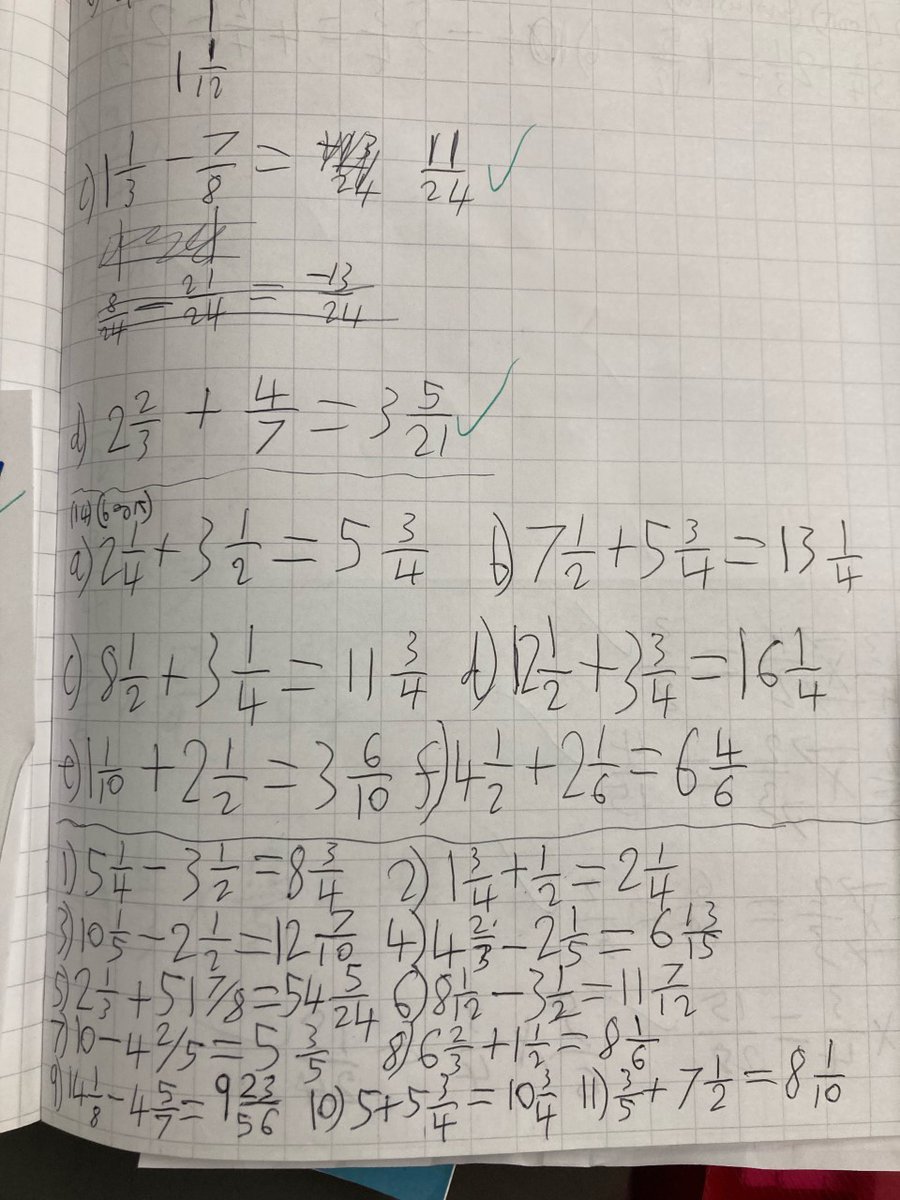 1 1/12
c) 1 1/3 - 7/8 = 11/24 ✓
8/24 - 21/24 = -13/24
d) 2 2/3 + 4/7 = 3 5/21 ✓
a) 2 1/4 + 3 1/2 = 5 3/4 b) 7 1/2 + 5 3/4 = 13 1/4
c) 8 1/2 + 3 1/4 = 11 3/4 d) 12 1/2 + 3 3/4 = 16 1/4
e) 1 1/10 + 2 1/2 = 3 6/10 f) 4 1/2 + 2 1/6 = 6 4/6
1) 5 1/4 - 3 1/2 = 8 3/4 2) 1 3/4 + 1/2 = 2 1/4
3) 10 1/5 - 2 1/2 = 12 7/10 4) 4 2/3 - 2 1/5 = 6 13/15
5) 2 1/3 + 51 7/8 = 54 5/24 6) 8 1/12 - 3 1/2 = 11 7/12
7) 10 - 4 2/5 = 5 3/5 8) 6 2/3 + 1 1/2 = 8 1/6
9) 14 1/8 - 4 5/7 = 9 23/56 10) 5 + 5 3/4 = 10 3/4 11) 3/5 + 7 1/2 = 8 1/10